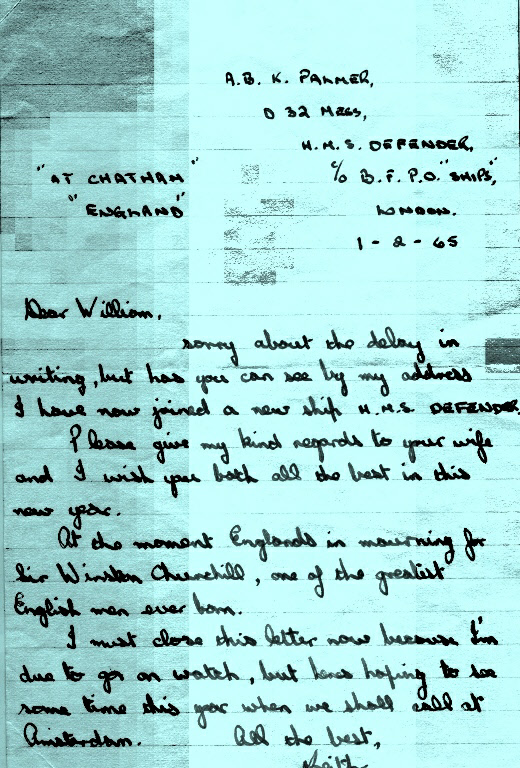 A.B. K. PALMER,
O 32 MESS,
H.M.S. DEFENDER,
"AT CHATHAM" c/o B.F.P.O. "SHIPS",
"ENGLAND" LONDON.
1 - 2 - 65
Dear William,
sorry about the delay in
writing, but has you can see by my address
I have now joined a new ship H.M.S. DEFENDER.
Please give my kind regards to your wife
and I wish you both all the best in this
new year.
At the moment Englands in mourning for
Sir Winston Churchill, one of the greatest
English men ever born.
I must close this letter now because I'm
due to go on watch, but heres hoping to see
some time this year when we shall call at
Amsterdam. All the best,
Keith